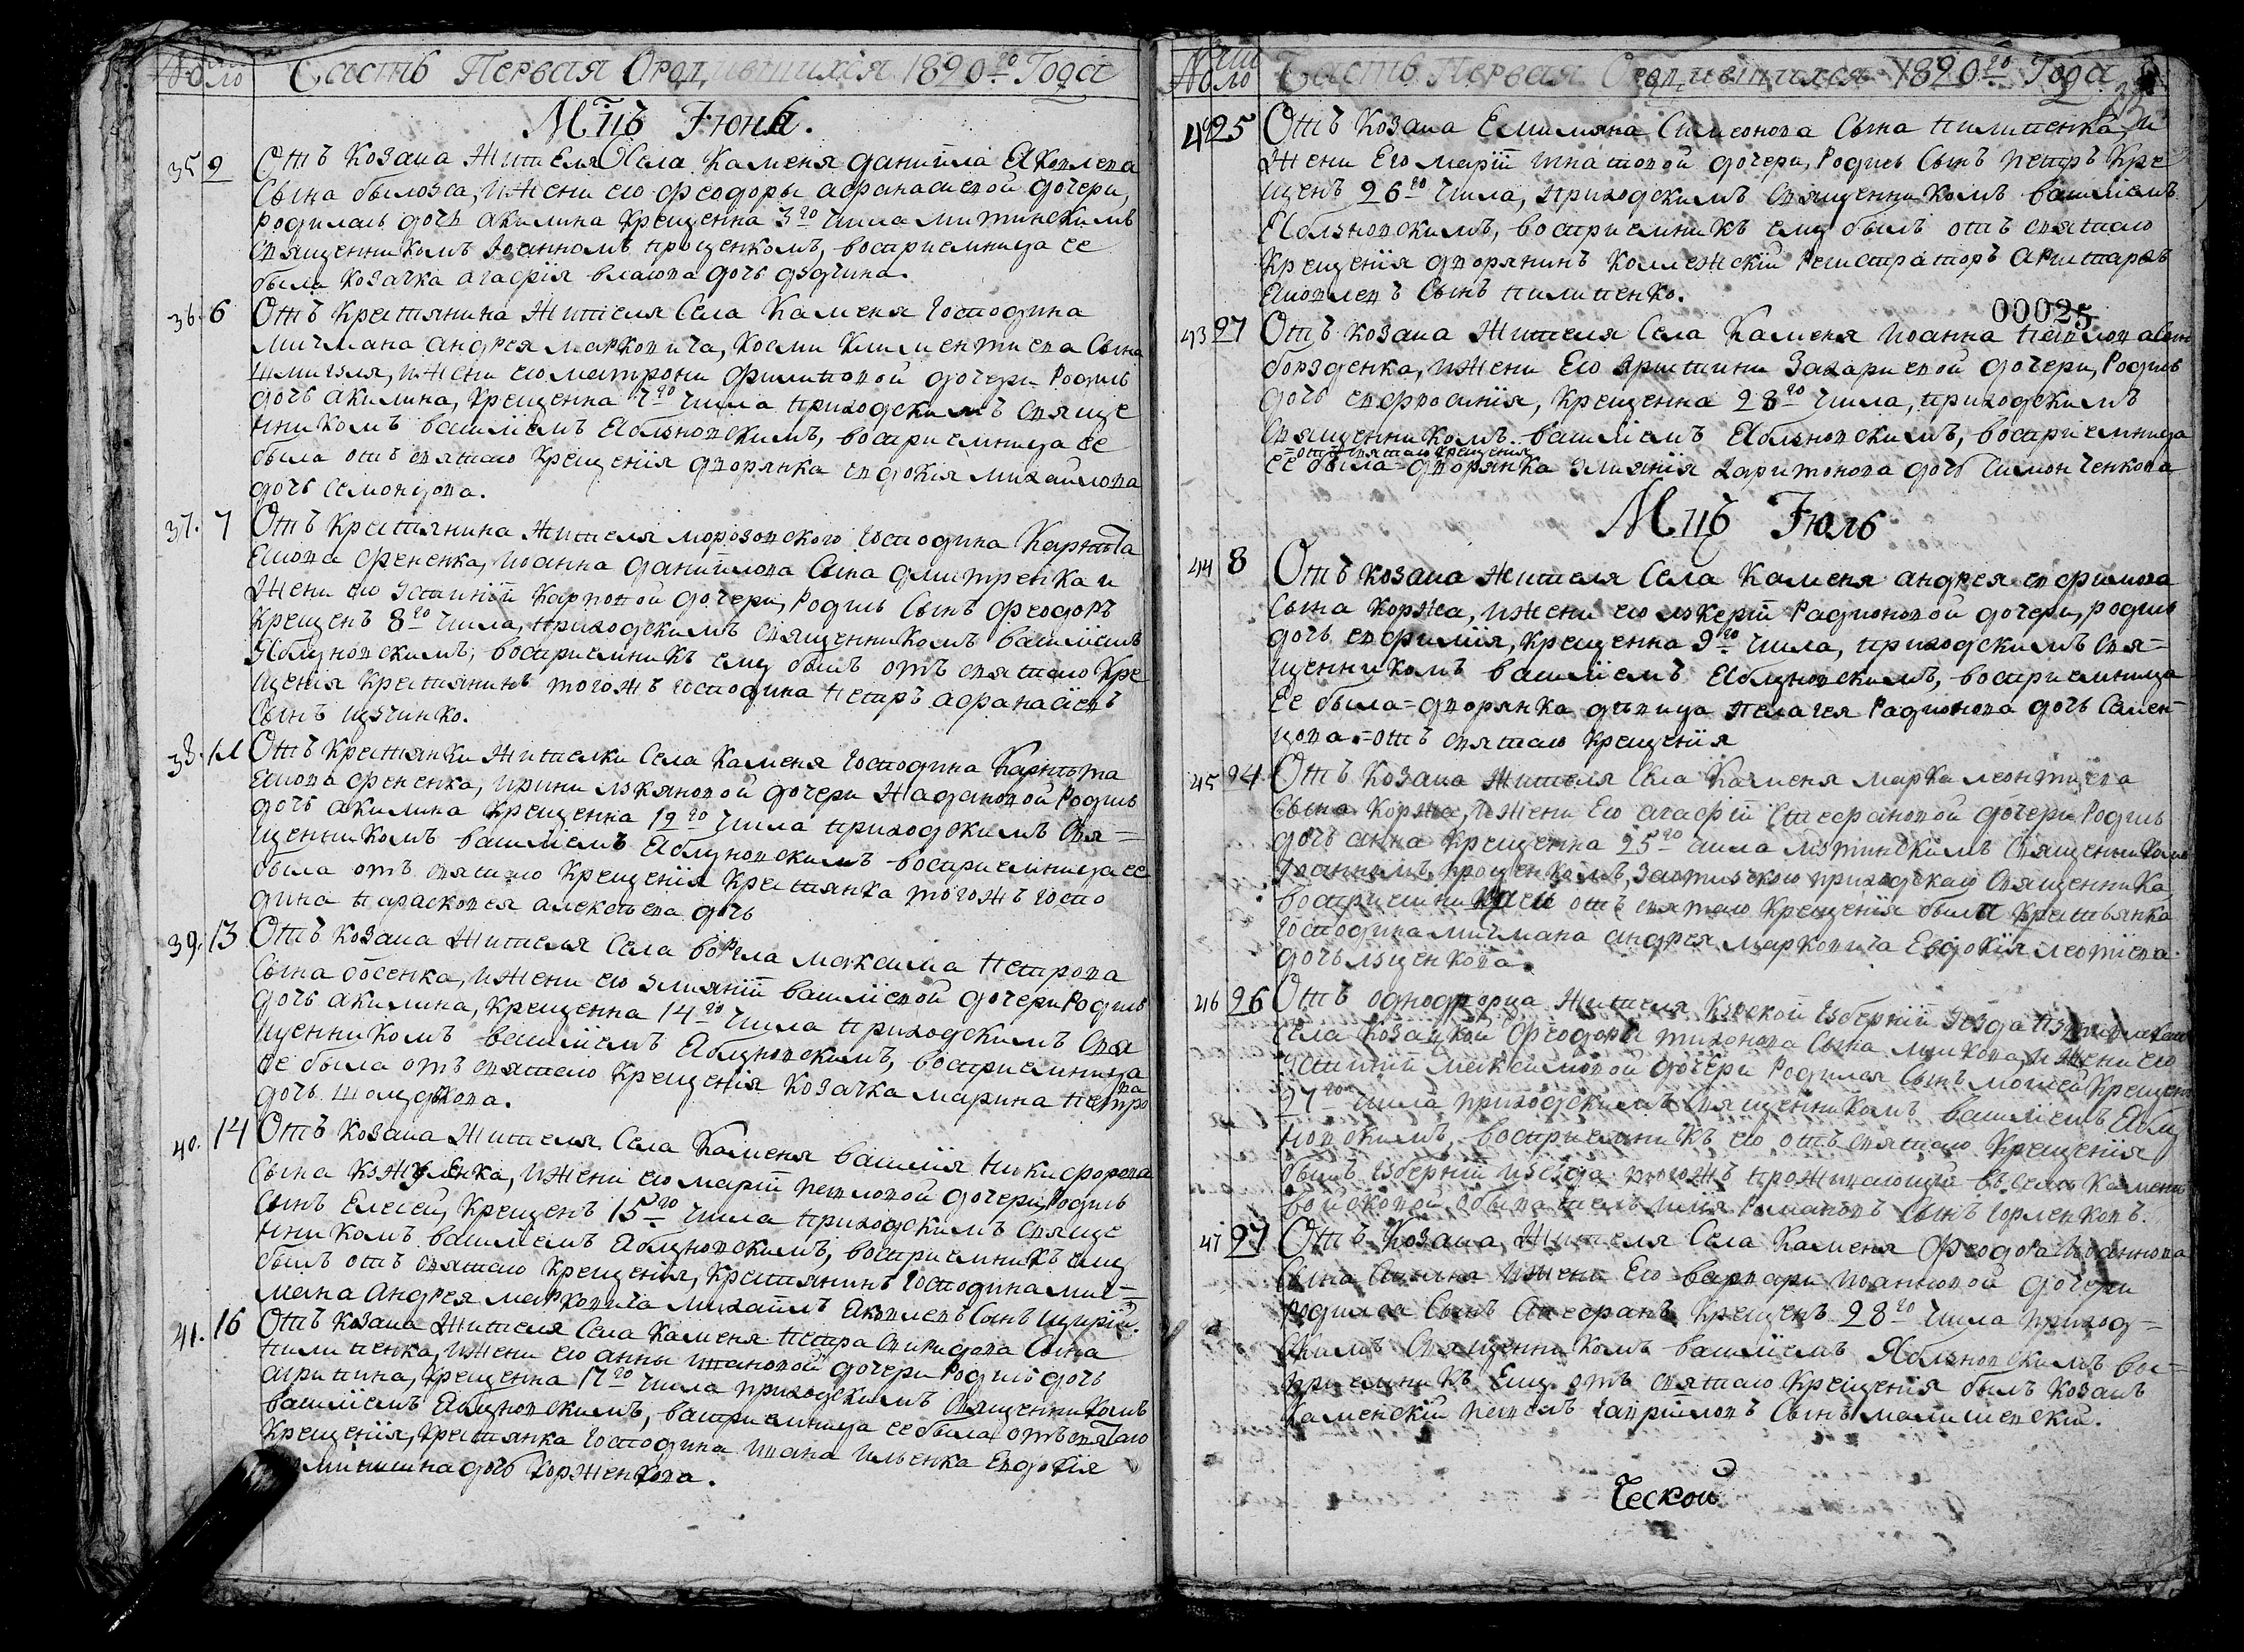 Часть Первая Ородившихся 1820го Года
Мцъ Іюнь.
35 2 Отъ козака жителя Села Каменя даниила Яковлева
Сына былоуса, ижени его феодоры афанасиевой дочери,
родилась дочь акилина крещенна 3го числа
священникомъ Іоанномъ проценкомъ, восприемница ее
была козачка агафія власова дочь
36. 6 Отъ крестянина жителя Села Каменя господина
мичмана андрея марковича, космы климентиева Сына
ижени его матрони филиповой дочери Родись
дочь акилина, крещенна 7го числа приходскимъ свяще
нникомъ василіемъ Яблуновскимъ, восприемница ее
была отъ святаго крещенія дворянка евдокія михайлова
дочь Семонцова.
37. 7 Отъ крестянина жителя морозовского господина
Якова фененка, иоанна даниилова Сына дмитренка и
жени его Устиніи карповой дочери, родись Сынъ феодоръ
крещенъ 8го числа, приходскимъ священникомъ василіемъ
Яблуновскимъ, восприемникъ ему былъ отъ святаго кре
щенія крестянинъ тогожъ господина петръ афанасіевъ
Сынъ
38. 11 Отъ крестянки жителки Села Каменя господина
Якова фененка, ирини лукяновой дочери Жадановой Родись
дочь акилина крещенна 12го числа приходскимъ свя=
щенникомъ василіемъ Яблуновскимъ восприемница ее
была отъ святаго крещенія крестянка тогожъ госпо
дина парасковея алексеева дочь
39. 13 Отъ козака жителя Села максима петрова
Сына босенка, ижени его улияніи василіевой дочери Родись
дочь акилина, крещенна 14го числа приходскимъ свя
щенникомъ василіемъ Яблуновскимъ, восприемница
ее была отъ святаго крещенія козачка марина петро
ва
дочь
40. 14 Отъ козака жителя Села Каменя василія никифорова
Сына ижени его маріи павловой дочери, Родись
Сынъ Елесей, крещенъ 15го числа приходскимъ свяще
нникомъ василіемъ Яблуновскимъ, восприемникъ ему
былъ отъ святаго крещенія, крестянинъ господина мич=
мана андрея марковича михаилъ Яковлевъ Сынъ
41. 16 Отъ козака жителя Села Каменя петра спиридова Сына
пилипенка, ижени его анны ивановой дочери Родись дочь
агрипина, крещенна 17го числа приходскимъ священникомъ
василіемъ Яблуновскимъ, восприемница ее была отъ святаго
крещенія, крестянка господина ивана ильенка Евдокія
дочь Корженкова.
Часть Первая Ородившихся 1820го Года
42 25 Отъ козака Емилияна Симеонова Сына пилипенка, и
жени его маріи игнатовой дочери, Родись Сынъ петръ кре
щенъ 26го числа, приходскимъ священникомъ василіемъ
Яблуновскимъ, восприемникъ ему былъ отъ святаго
крещенія дворянинъ Коллежскій Регистраторъ аристархъ
Яковлевъ Сынъ пилипенко.
00025
43 27 Отъ козака жителя Села Каменя иоанна
борзденка, ижени его христини Захариевой дочери, Родись
дочь евфросинія, крещенна 28го числа, приходскимъ
священникомъ василіемъ Яблуновскимъ, восприемница
=отъ святаго крещенія
ее была=дворянка улиянія харитонова дочь Симонченкова
Мцъ Іюль
44 8 Отъ козака жителя Села Каменя андрея евфимова
Сына коржа, ижени его лукеріи Радионовой дочери, родись
дочь евфимія, крещенна 9го числа, приходскимъ свя=
щенникомъ василіемъ Яблуновскимъ, восприемница
ее была=дворянка девица пелагея Радионова дочь Семен=
цова.=отъ святаго крещенія
45 24 Отъ козака жителя Села Каменя марка леонтиева
Сына коржа, ижени его агафіи Стефановой дочери Родись
дочь анна крещенна 25го числа священникомъ
Іоанномъ проценкомъ, приходскаго священника
отъ святаго крещенія была крестьянка
господина мичмана андрея марковича Евдокія леотіева
дочь
46 26 Отъ однодворца жителя Курской губерніи уезда
Села Козацкой феодора тихонова Сына ижени его
Устиніи максимовой дочери Родился Сынъ моисей крещенъ
27го числа приходскимъ священникомъ василіемъ Яблу
новскимъ, восприемникъ его отъ святаго крещенія
былъ губерніи иуезда тогожъ проживающій въ селе Камени
войсковой обыватель илія Романовъ Сынъ Горленковъ.
47 27 Отъ Козака, жителя Села Каменя Феодора Иоаннова
Сына ижени Его варвари иоанновой дочери
родился Сынъ Стефанъ крещенъ 28го числа приход=
скимъ священникомъ василіемъ Яблуновскимъ во=
приемникъ ему отъ святаго крещенія былъ козакъ
Каменскій павелъ гавриловъ Сынъ малишевскій.
ческой